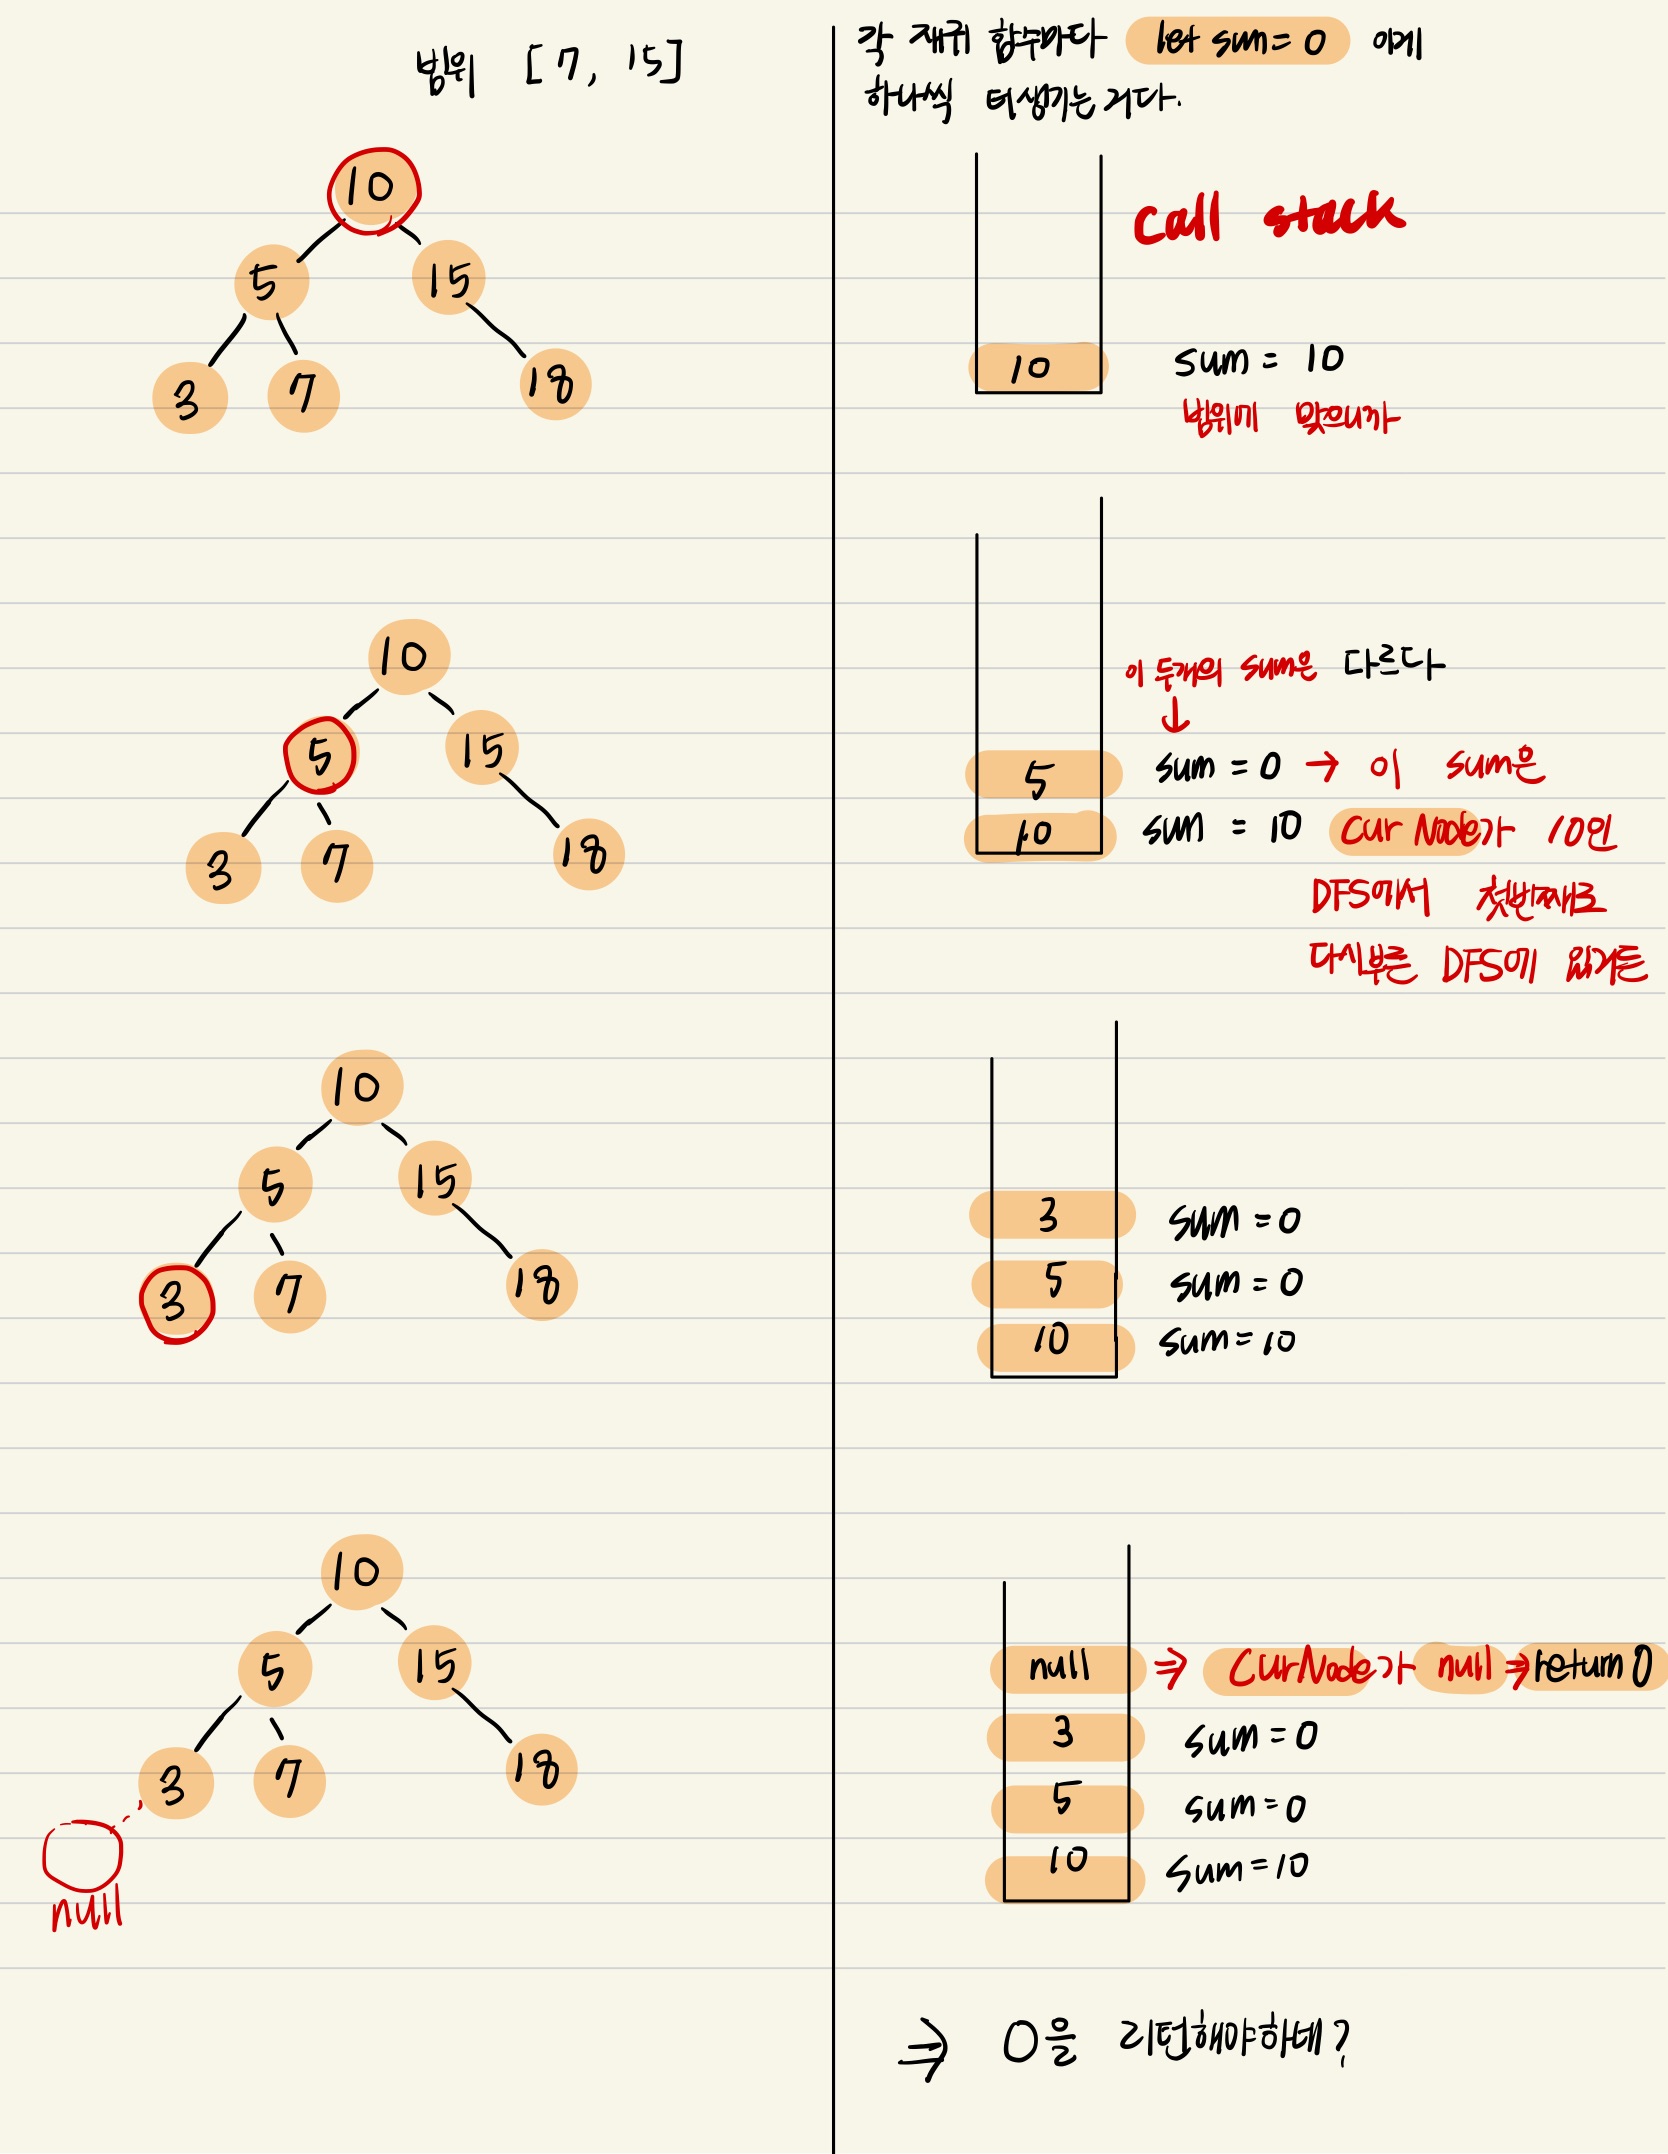 범위 [7, 15]
10
5 15
3 7 18
10
5 15
3 7 18
10
5 15
3 7 18
10
5 15
3 7 18
null
각 재귀 함수마다 let sum = 0 이게
하나씩 더생기는거다.
call stack
10 sum = 10
범위에 맞으니까
이 두개의 sum은 다르다
↓
5 sum = 0 → 이 sum은
10 sum = 10 Cur Node가 10인
DFS에서 첫번째로
다시부른 DFS에 있거든
3 sum = 0
5 sum = 0
10 sum = 10
null ⇒ CurNode가 null ⇒ return 0
3 sum = 0
5 sum = 0
10 sum = 10
⇒ 0을 리턴해야하네?